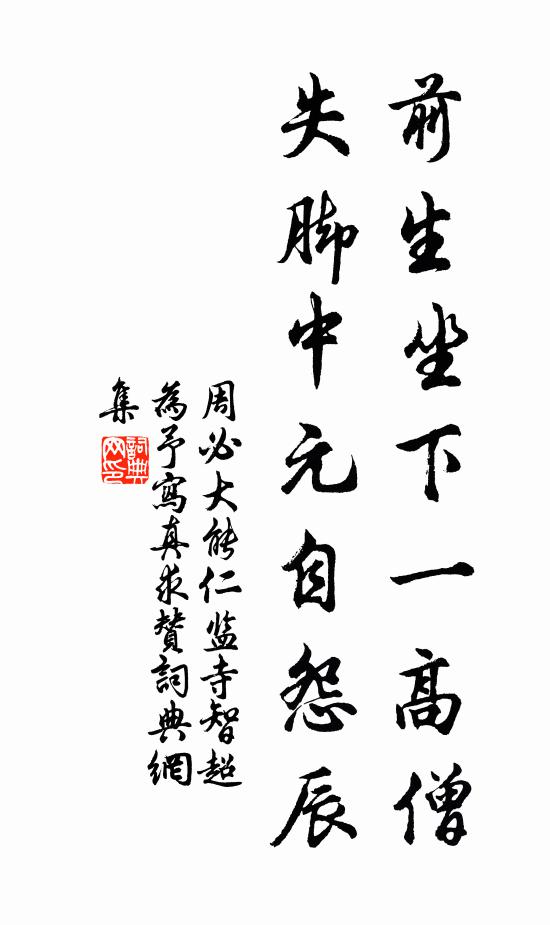 前生坐下一高僧
失脚中元自怨辰
周必大能仁监寺智超
為予寫真求贊詞典網
集
詞典網印